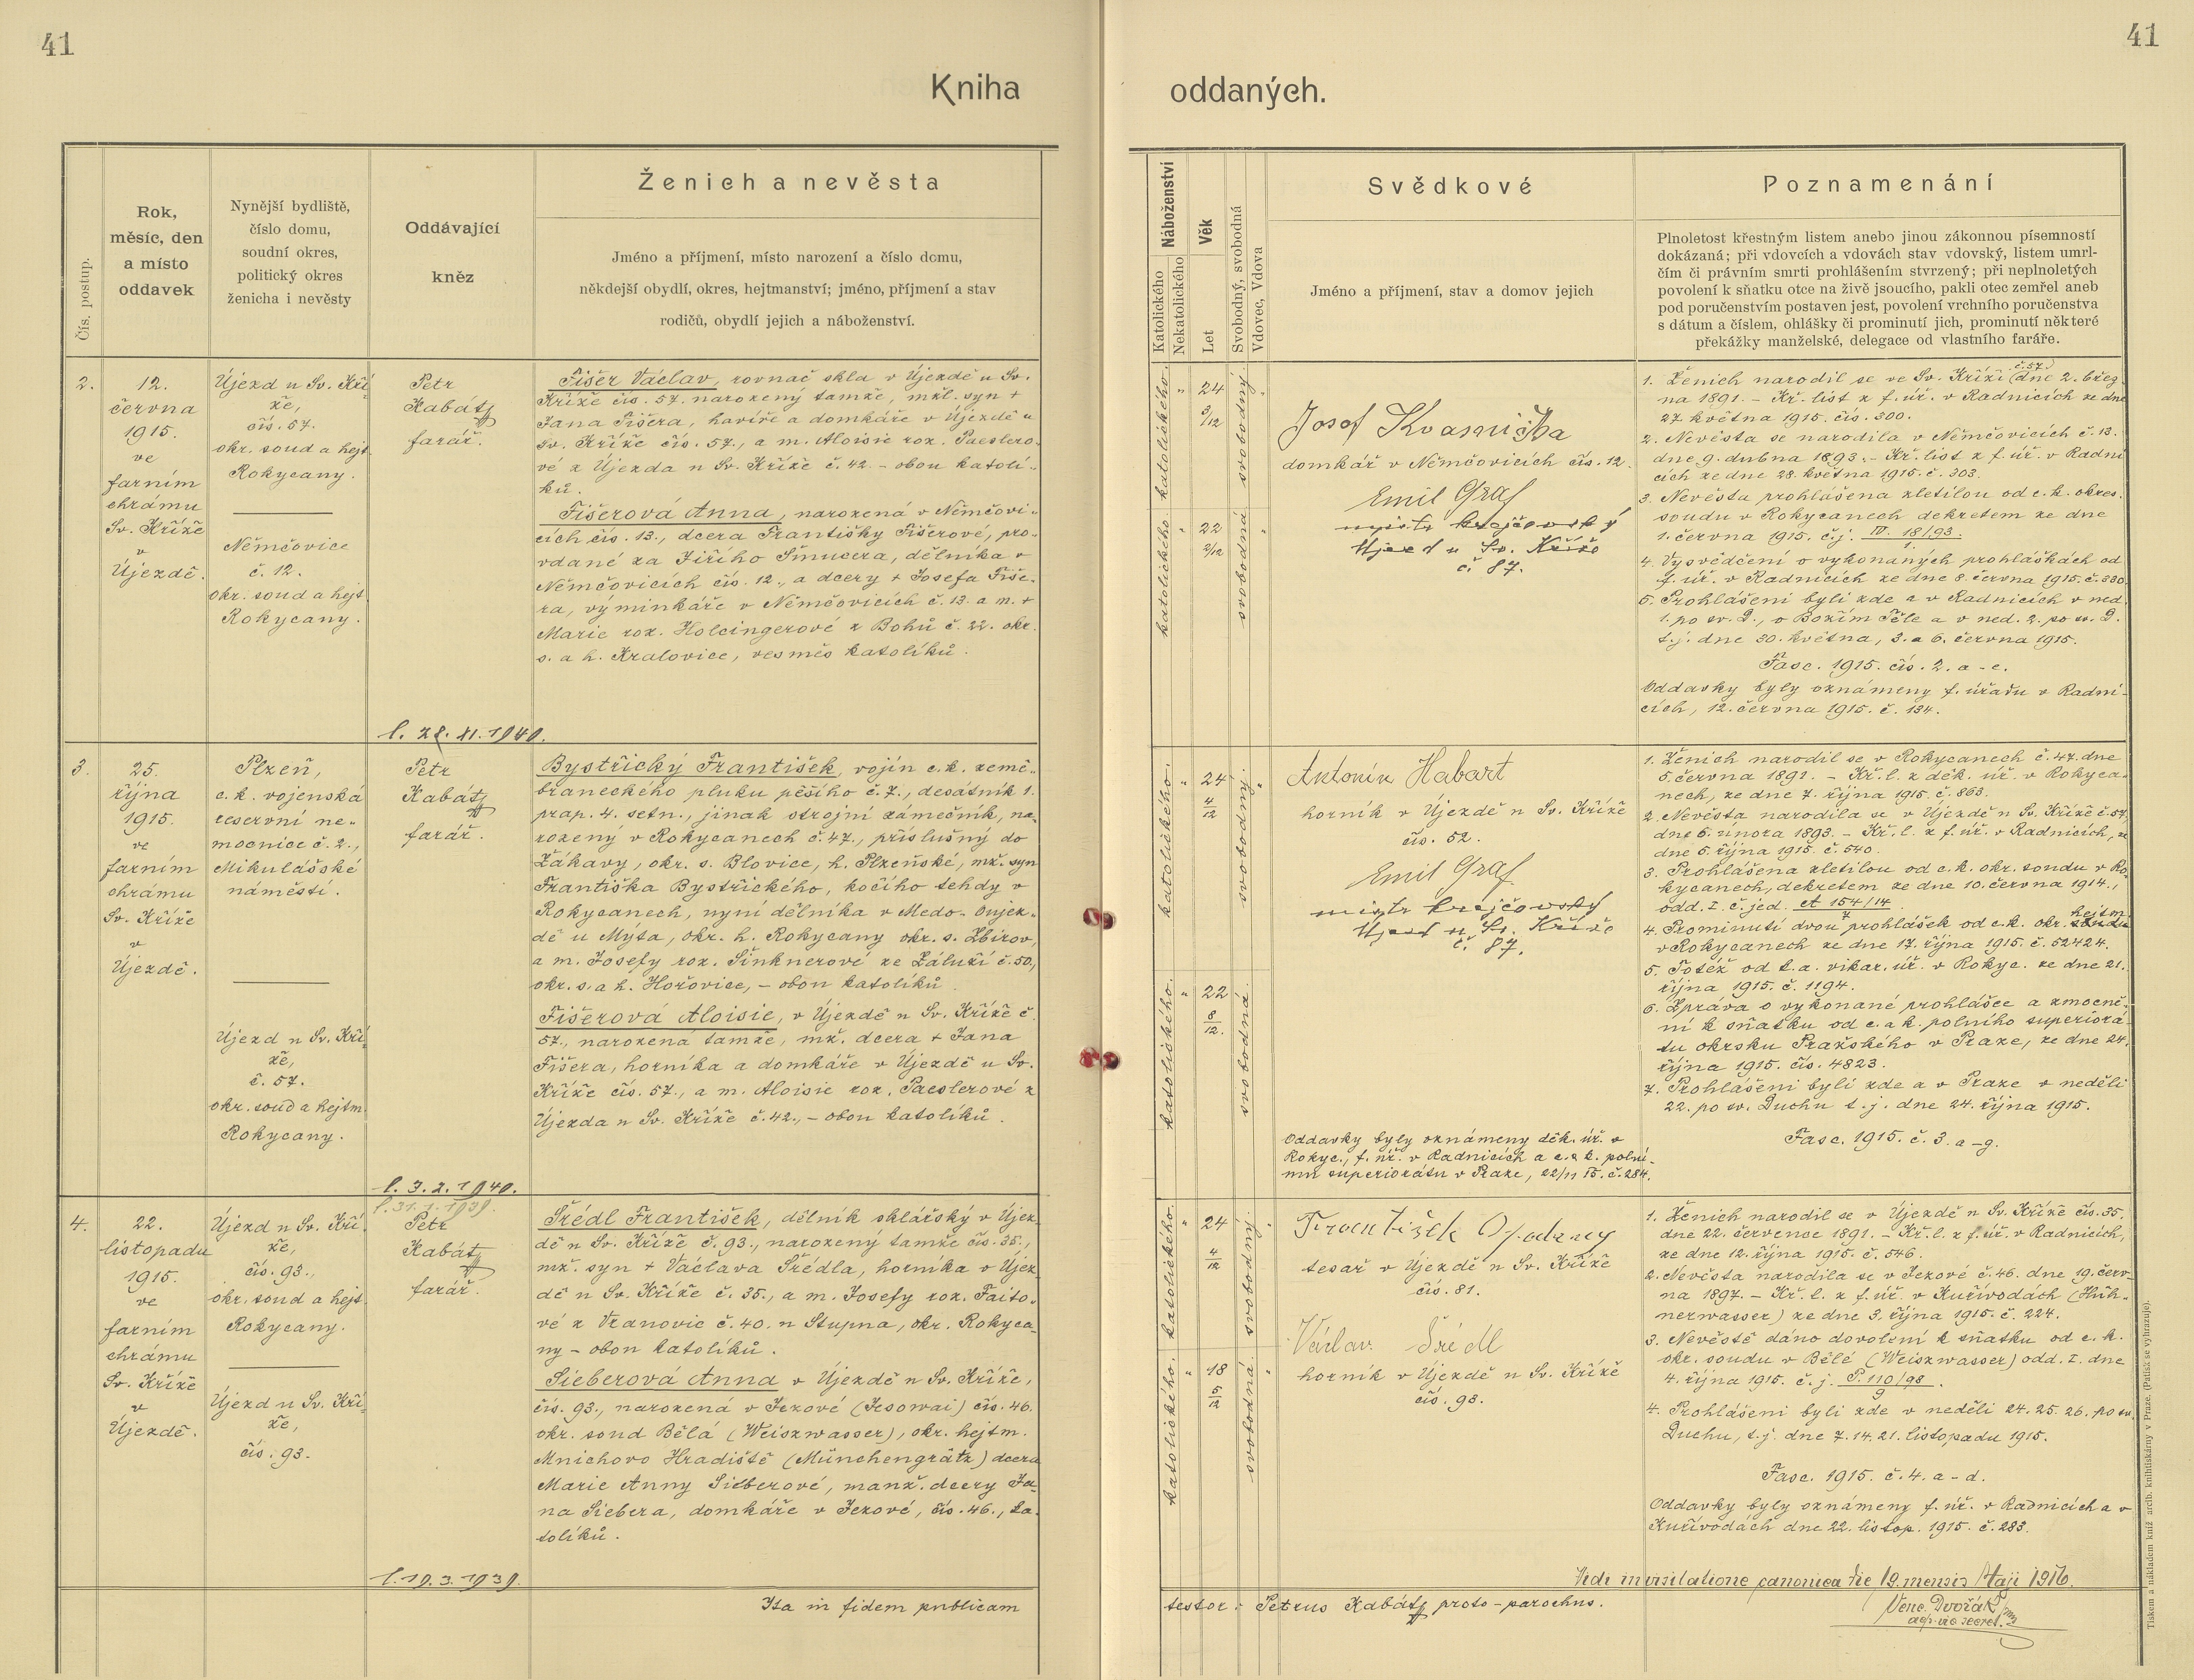 41
41
Kniha
oddaných.
Čís. postup.
Rok,
měsíc, den
a místo
oddavek
Nynější bydliště,
číslo domu,
soudní okres,
politický okres
ženicha i nevěsty
Oddávající
kněz
Ženich a nevěsta
Jméno a příjmení, místo narození a číslo domu,
někdejší obydlí, okres, hejtmanství; jméno, příjmení a stav
rodičů, obydlí jejich a náboženství.
Náboženství
Katolického
Nekatolického
Věk
Let
Svobodný, svobodná
Vdovec, Vdova
Svědkové
Jméno a příjmení, stav a domov jejich
Poznamenání
Plnoletost křestným listem anebo jinou zákonnou písemností
dokázaná; při vdovcích a vdovách stav vdovský, listem umrl-
čím či právním smrti prohlášením stvrzený; při neplnoletých
povolení k sňatku otce na živě jsoucího, pakli otec zemřel aneb
pod poručenstvím postaven jest, povolení vrchního poručenstva
s dátum a číslem, ohlášky či prominutí jich, prominutí některé
překážky manželské, delegace od vlastního faráře.
2.
12.
června
1915.
ve
farním
chrámu
Sv. Kříže
v
Újezdě.
Újezd u Sv. Kří-
že,
čís. 57.
okr. soud a hejt.
Rokycany.
Němčovice
č. 12.
okr. soud a hejt.
Rokycany.
Petr
Kabát
farář.
Fišer Václav, rovnač skla v Újezdě u Sv.
Kříže čís. 57. narozený tamže, mžl. syn +
Jana Fišera, havíře a domkáře v Újezdě u
Sv. Kříže čís. 57., a m. Aloisie roz. Paeslero-
vé z Újezda u Sv. Kříže č. 42. - obou katolí-
ků.
Fišerová Anna, narozená v Němčovi-
cích čís. 13., dcera Františky Fišerové, pro-
vdané za Jiřího Šmucera, dělníka v
Němčovicích čís. 12., a dcery + Josefa Fiše-
ra, výminkáře v Němčovicích č. 13. a m. +
Marie roz. Holcingerové z Bohů č. 22. okr.
s. a h. Kralovice, vesměs katolíků.
l. 28. XI. 1940.
katolického.
24
3/12
svobodný.
katolického.
22
2/12
svobodná.
Josef Kvasnička
domkář v Němčovicích čís. 12.
Emil Graf
mistr krejčovský
Újezd u Sv. Kříže
č. 87.
1. Ženich narodil se ve Sv. Kříži (č. 57.) dne 2. břez-
na 1891. - Kř. list z f. úř. v Radnicích ze dne
27. května 1915. čís. 300.
2. Nevěsta se narodila v Němčovicích č. 13.
dne 9. dubna 1893. - Kř. list z f. úř. v Radni-
cích ze dne 28. května 1915. č. 303.
3. Nevěsta prohlášena zletilou od c. k. okres.
soudu v Rokycanech dekretem ze dne
1. června 1915. č. j. IV. 18/93.
1.
4. Vysvědčení o vykonaných prohláškách od
f. úř. v Radnicích ze dne 8. června 1915. č. 330.
5. Prohlášeni byli zde a v Radnicích v ned.
1. po sv. D., o Božím Těle a v ned. 2. po sv. D.
t. j. dne 30. května, 3. a 6. června 1915.
Fasc. 1915. čís. 2. a - e.
Oddavky byly oznámeny f. úřadu v Radni-
cích, 12. června 1915. č. 134.
3.
25.
října
1915.
ve
farním
chrámu
Sv. Kříže
v
Újezdě.
Plzeň,
c. k. vojenská
reservní ne-
mocnice č. 2.,
Mikulášské
náměstí.
Újezd u Sv. Kří-
že,
č. 57.
okr. soud a hejtm.
Rokycany.
Petr
Kabát
farář.
Bystřický František, vojín c. k. země-
braneckého pluku pěšího č. 7., desátník 1.
prap. 4. setn., jinak strojní zámečník, na-
rozený v Rokycanech č. 47., příslušný do
Žákavy, okr. s. Blovice, h. Plzeňské, mž. syn
Františka Bystřického, kočího tehdy v
Rokycanech, nyní dělníka v Medo-Oujez-
dě u Mýta, okr. h. Rokycany okr. s. Zbirov,
a m. Josefy roz. Šinknerové ze Záluží č. 50.,
okr. s. a h. Hořovice, - obou katolíků.
Fišerová Aloisie, v Újezdě u Sv. Kříže č.
57., narozená tamže, mž. dcera + Jana
Fišera, horníka a domkáře v Újezdě u Sv.
Kříže čís. 57., a m. Aloisie roz. Paeslerové z
Újezda u Sv. Kříže č. 42., - obou katolíků.
l. 3. 2. 1940.
katolického.
24
4/12
svobodný.
katolického.
22
8/12.
svobodná.
Antonín Habart
horník v Újezdě u Sv. Kříže
čís. 52.
Emil Graf
mistr krejčovský
Újezd u Sv. Kříže
č. 87.
Oddavky byly oznámeny děk. úř. v
Rokyc., f. úř. v Radnicích a c. a k. polní-
mu superiorátu v Praze, 22/11 15. č. 284.
1. Ženich narodil se v Rokycanech č. 47. dne
5. června 1891. - Kř. l. z děk. úř. v Rokyca-
nech, ze dne 7. října 1915. č. 863.
2. Nevěsta narodila se v Újezdě u Sv. Kříže č. 57.
dne 6. února 1893. - Kř. l. z f. úř. v Radnicích, z
dne 5. října 1915. č. 540.
3. Prohlášena zletilou od c. k. okr. soudu v Ro-
kycanech, dekretem ze dne 10. června 1914.,
odd. I. č. jed. A 154/14
7
4. Prominutí dvou prohlášek od c. k. okr. hejtm.
v Rokycanech ze dne 17. října 1915. č. 52424.
5. Totéž od t. a. vikar. úř. v Rokyc. ze dne 21.
října 1915. č. 1194.
6. Zpráva o vykonané prohlášce a zmocně-
ní k sňatku od c. a k. polního superiorá-
tu okrsku Pražského v Praze, ze dne 24.
října 1915. čís. 4823.
7. Prohlášeni byli zde a v Praze v neděli
22. po sv. Duchu t. j. dne 24. října 1915.
Fasc. 1915. č. 3. a - g.
4.
22.
listopadu
1915.
ve
farním
chrámu
Sv. Kříže
v
Újezdě.
Újezd u Sv. Kří-
že,
čís. 93.,
okr. soud a hejt.
Rokycany.
Újezd u Sv. Kří-
že,
čís. 93.
l. 31. 1. 1939.
Petr
Kabát
farář.
Šrédl František, dělník sklářský v Újez-
dě u Sv. Kříže č. 93., narozený tamže čís. 35.,
mž. syn + Václava Šrédla, horníka v Újez-
dě u Sv. Kříže č. 35., a m. Josefy roz. Faito-
vé z Vranovic č. 40. u Stupna, okr. Rokyca-
ny - obou katolíků.
Sieberová Anna v Újezdě u Sv. Kříže,
čís. 93., narozená v Jezové (Jesowai) čís. 46.
okr. soud Bělá (Weiszwasser), okr. hejtm.
Mnichovo Hradiště (Münchengrätz) dcera
Marie Anny Sieberové, manž. dcery Ja-
na Siebera, domkáře v Jezové, čís. 46., ka-
tolíků.
l. 19. 3. 1939.
katolického.
24
4/12
svobodný.
katolického.
18
5/12
svobodná.
František Opatrný
tesař v Újezdě u Sv. Kříže
čís. 81.
Václav Šrédl
horník v Újezdě u Sv. Kříže
čís. 93.
1. Ženich narodil se v Újezdě u Sv. Kříže čís. 35.
dne 22. července 1891. - Kř. l. z f. úř. v Radnicích,
ze dne 12. října 1915. č. 546.
2. Nevěsta narodila se v Jezové č. 46. dne 19. červ-
na 1897. - Kř. l. z f. úř. v Kuřivodach (Hüh-
nerwasser) ze dne 3. října 1915. č. 224.
3. Nevěstě dáno dovolení k sňatku od c. k.
okr. soudu v Bělé (Weiszwasser) odd. I. dne
4. října 1915. č. j. P. 110/98.
9
4. Prohlášeni byli zde v neděli 24. 25. 26. po sv.
Duchu, t. j. dne 7. 14. 21. listopadu 1915.
Fasc. 1915. č. 4. a - d.
Oddavky byly oznámeny f. úř. v Radnicích a v
Kuřivodách dne 22. listop. 1915. č. 283.
Vidi in visitatione canonica die 19. mensis Maji 1916.
Ita in fidem publicam
testor: Petrus Kabát proto-parochus.
Venc. Dvořák
Tiskem a nákladem kniž. arcib. knihtiskárny v Praze. (Patisk se vyhrazuje).